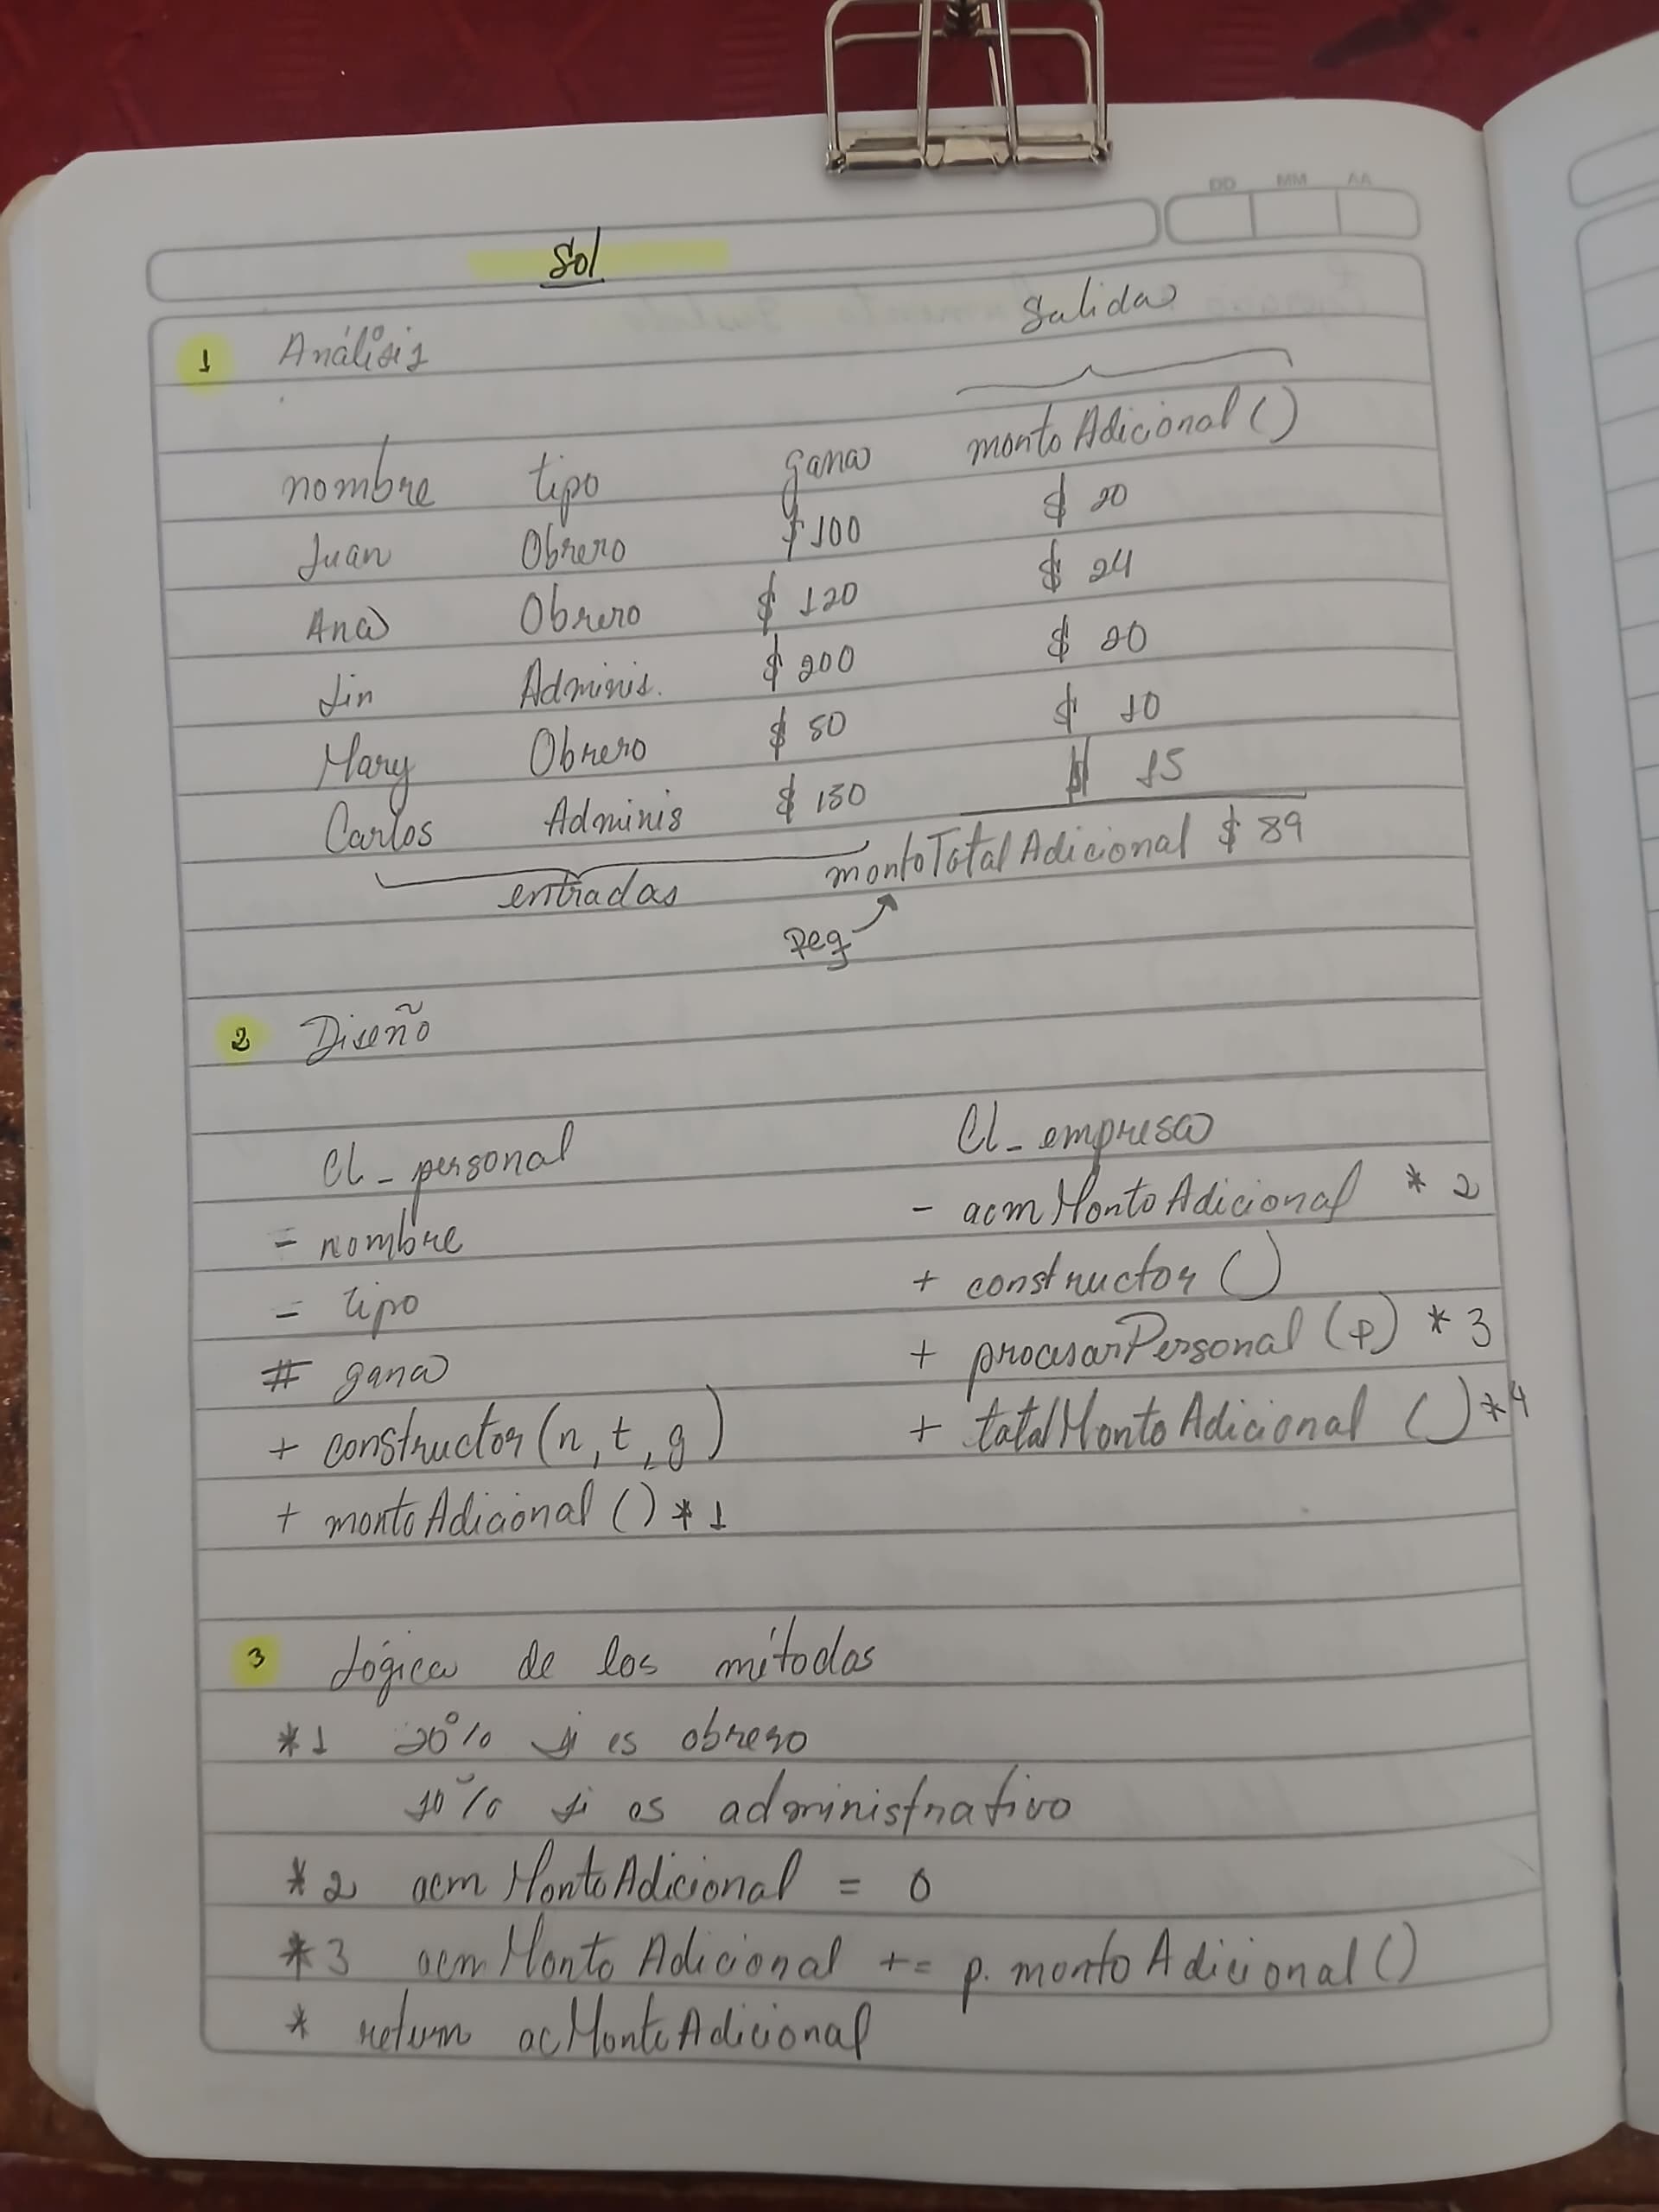 DD MM AA
Sol
1 Análisis
Salida
nombre tipo gana montoAdicional ()
Juan Obrero $ 100 $ 20
Ana Obrero $ 120 $ 24
Lin Adminis. $ 200 $ 20
Mary Obrero $ 50 $ 10
Carlos Adminis $ 150 $ 15
entradas
montoTotalAdicional $ 89
Req
2 Diseño
Cl_personal
= nombre
= tipo
# gana
+ constructor (n, t, g)
+ montoAdicional () * 1
Cl_empresa
- acmMontoAdicional * 2
+ constructor ()
+ procesarPersonal (p) * 3
+ totalMontoAdicional () * 4
3 Lógica de los métodos
*1 20% si es obrero
10% si es administrativo
*2 acmMontoAdicional = 0
*3 acmMontoAdicional += p. montoAdicional ()
* return acMontoAdicional